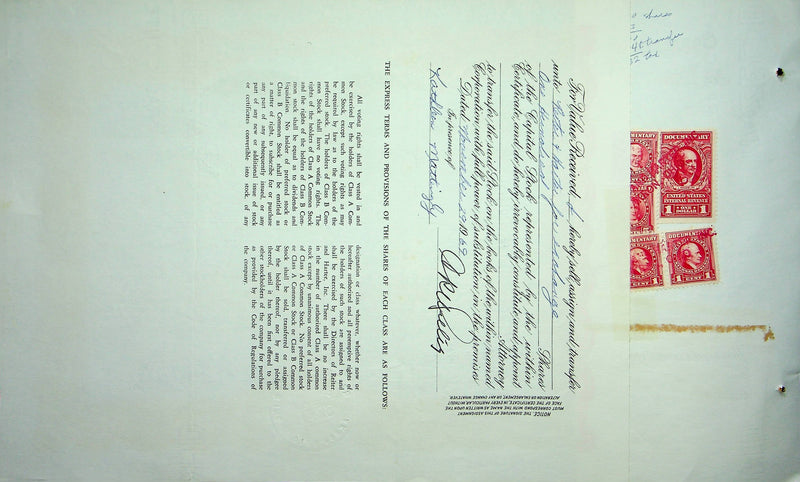 shares
transfer
tax
DOCUMENTARY
UNITED STATES
INTERNAL REVENUE
1 ONE DOLLAR 1
DOCUMENTARY
1 CENT 1
For Value Received, I hereby sell, assign, and transfer
unto Reiter & Harter for exchange
One thousand Shares
of the Capital Stock represented by the within
Certificate, and do hereby irrevocably constitute and appoint
Attorney
to transfer the said Stock on the books of the within named
Corporation with full power of substitution in the premises.
Dated November 1965
In presence of
Kathleen
NOTICE. THE SIGNATURE OF THIS ASSIGNMENT
MUST CORRESPOND WITH THE NAME AS WRITTEN UPON THE
FACE OF THE CERTIFICATE, IN EVERY PARTICULAR, WITHOUT
ALTERATION OR ENLARGEMENT, OR ANY CHANGE WHATEVER.
THE EXPRESS TERMS AND PROVISIONS OF THE SHARES OF EACH CLASS ARE AS FOLLOWS:
All voting rights shall be vested in and
be exercised by the holders of Class A Com-
mon Stock, except such voting rights as may
be required by law as to the holders of the
preferred stock. The holders of Class B Com-
mon Stock shall have no voting rights. The
rights of the holders of Class A Common Stock
and the rights of the holders of Class B Com-
mon stock shall be equal as to dividends and
liquidation. No holder of preferred stock or
Class B Common Stock shall be entitled as
a matter of right, to subscribe for or purchase
any part of any subsequently issued, or any
part of any new or additional issue of stock
or certificates convertible into stock of any
designation or class whatever, whether now or
hereafter authorized and all preemptive rights of
the holders of such stock are assigned to and
shall be exercised by the Directors of Reiter
and Harter, Inc. There shall be no increase
in the number of authorized Class A common
stock except by unanimous consent of all holders
of Class A Common Stock. No preferred stock
or Class A Common Stock or Class B Common
Stock shall be sold, transferred or assigned
by the holder thereof, nor by any pledgee
thereof, until it has been first offered to the
other stockholders of the company for purchase
as provided by the Code of Regulations of
the company.